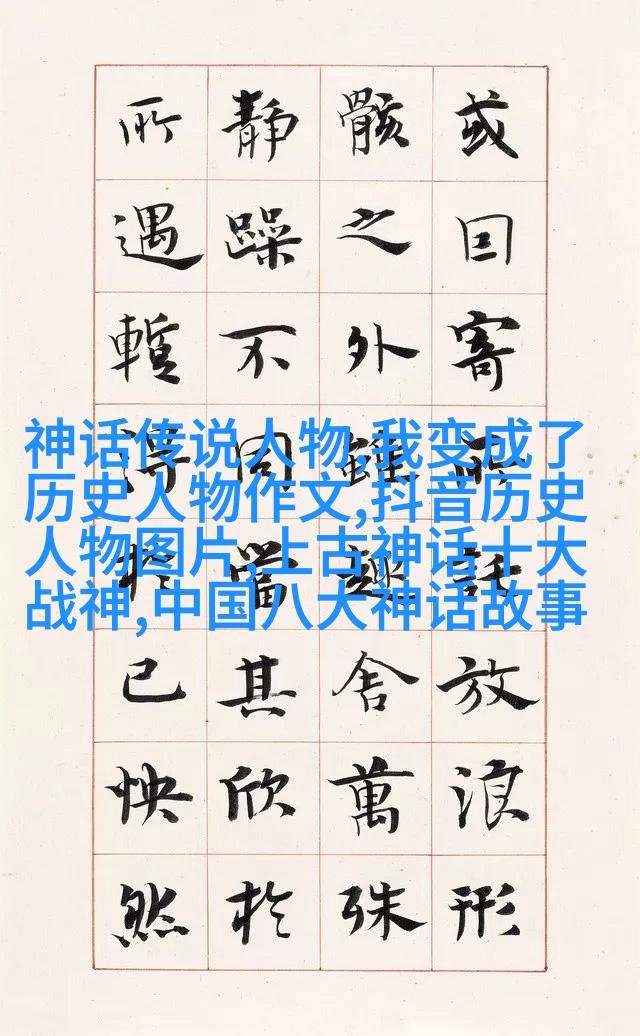 或囙寄所託放浪形
骸之外雖趣舍萬殊
靜躁不同當其欣於
所遇暫得於己怏然
神话传说人物,我变成了
历史人物作文,抖音历史
人物图片,上古神话十大
战神,中国八大神话故事